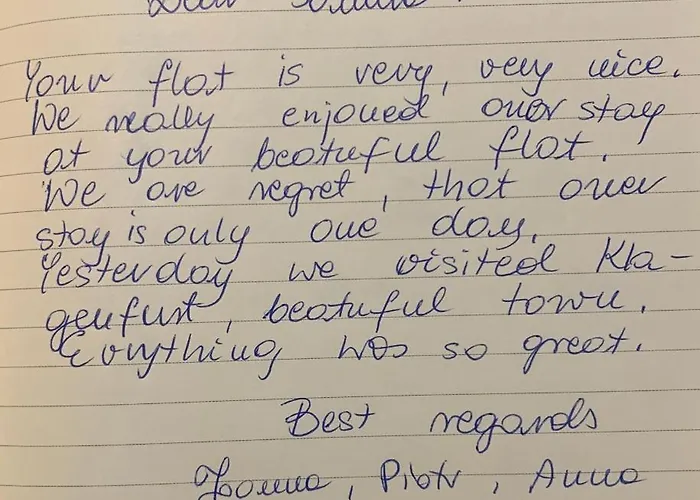 Your flat is very, very nice.
We really enjoued ouer stay
at your beatuful flat.
We are regret, that ouer
stay is only one day.
Yesterday we visited Kla-
genfurt, beatuful town.
Evrything was so great.
Best regards
Joanna, Piotr, Anna